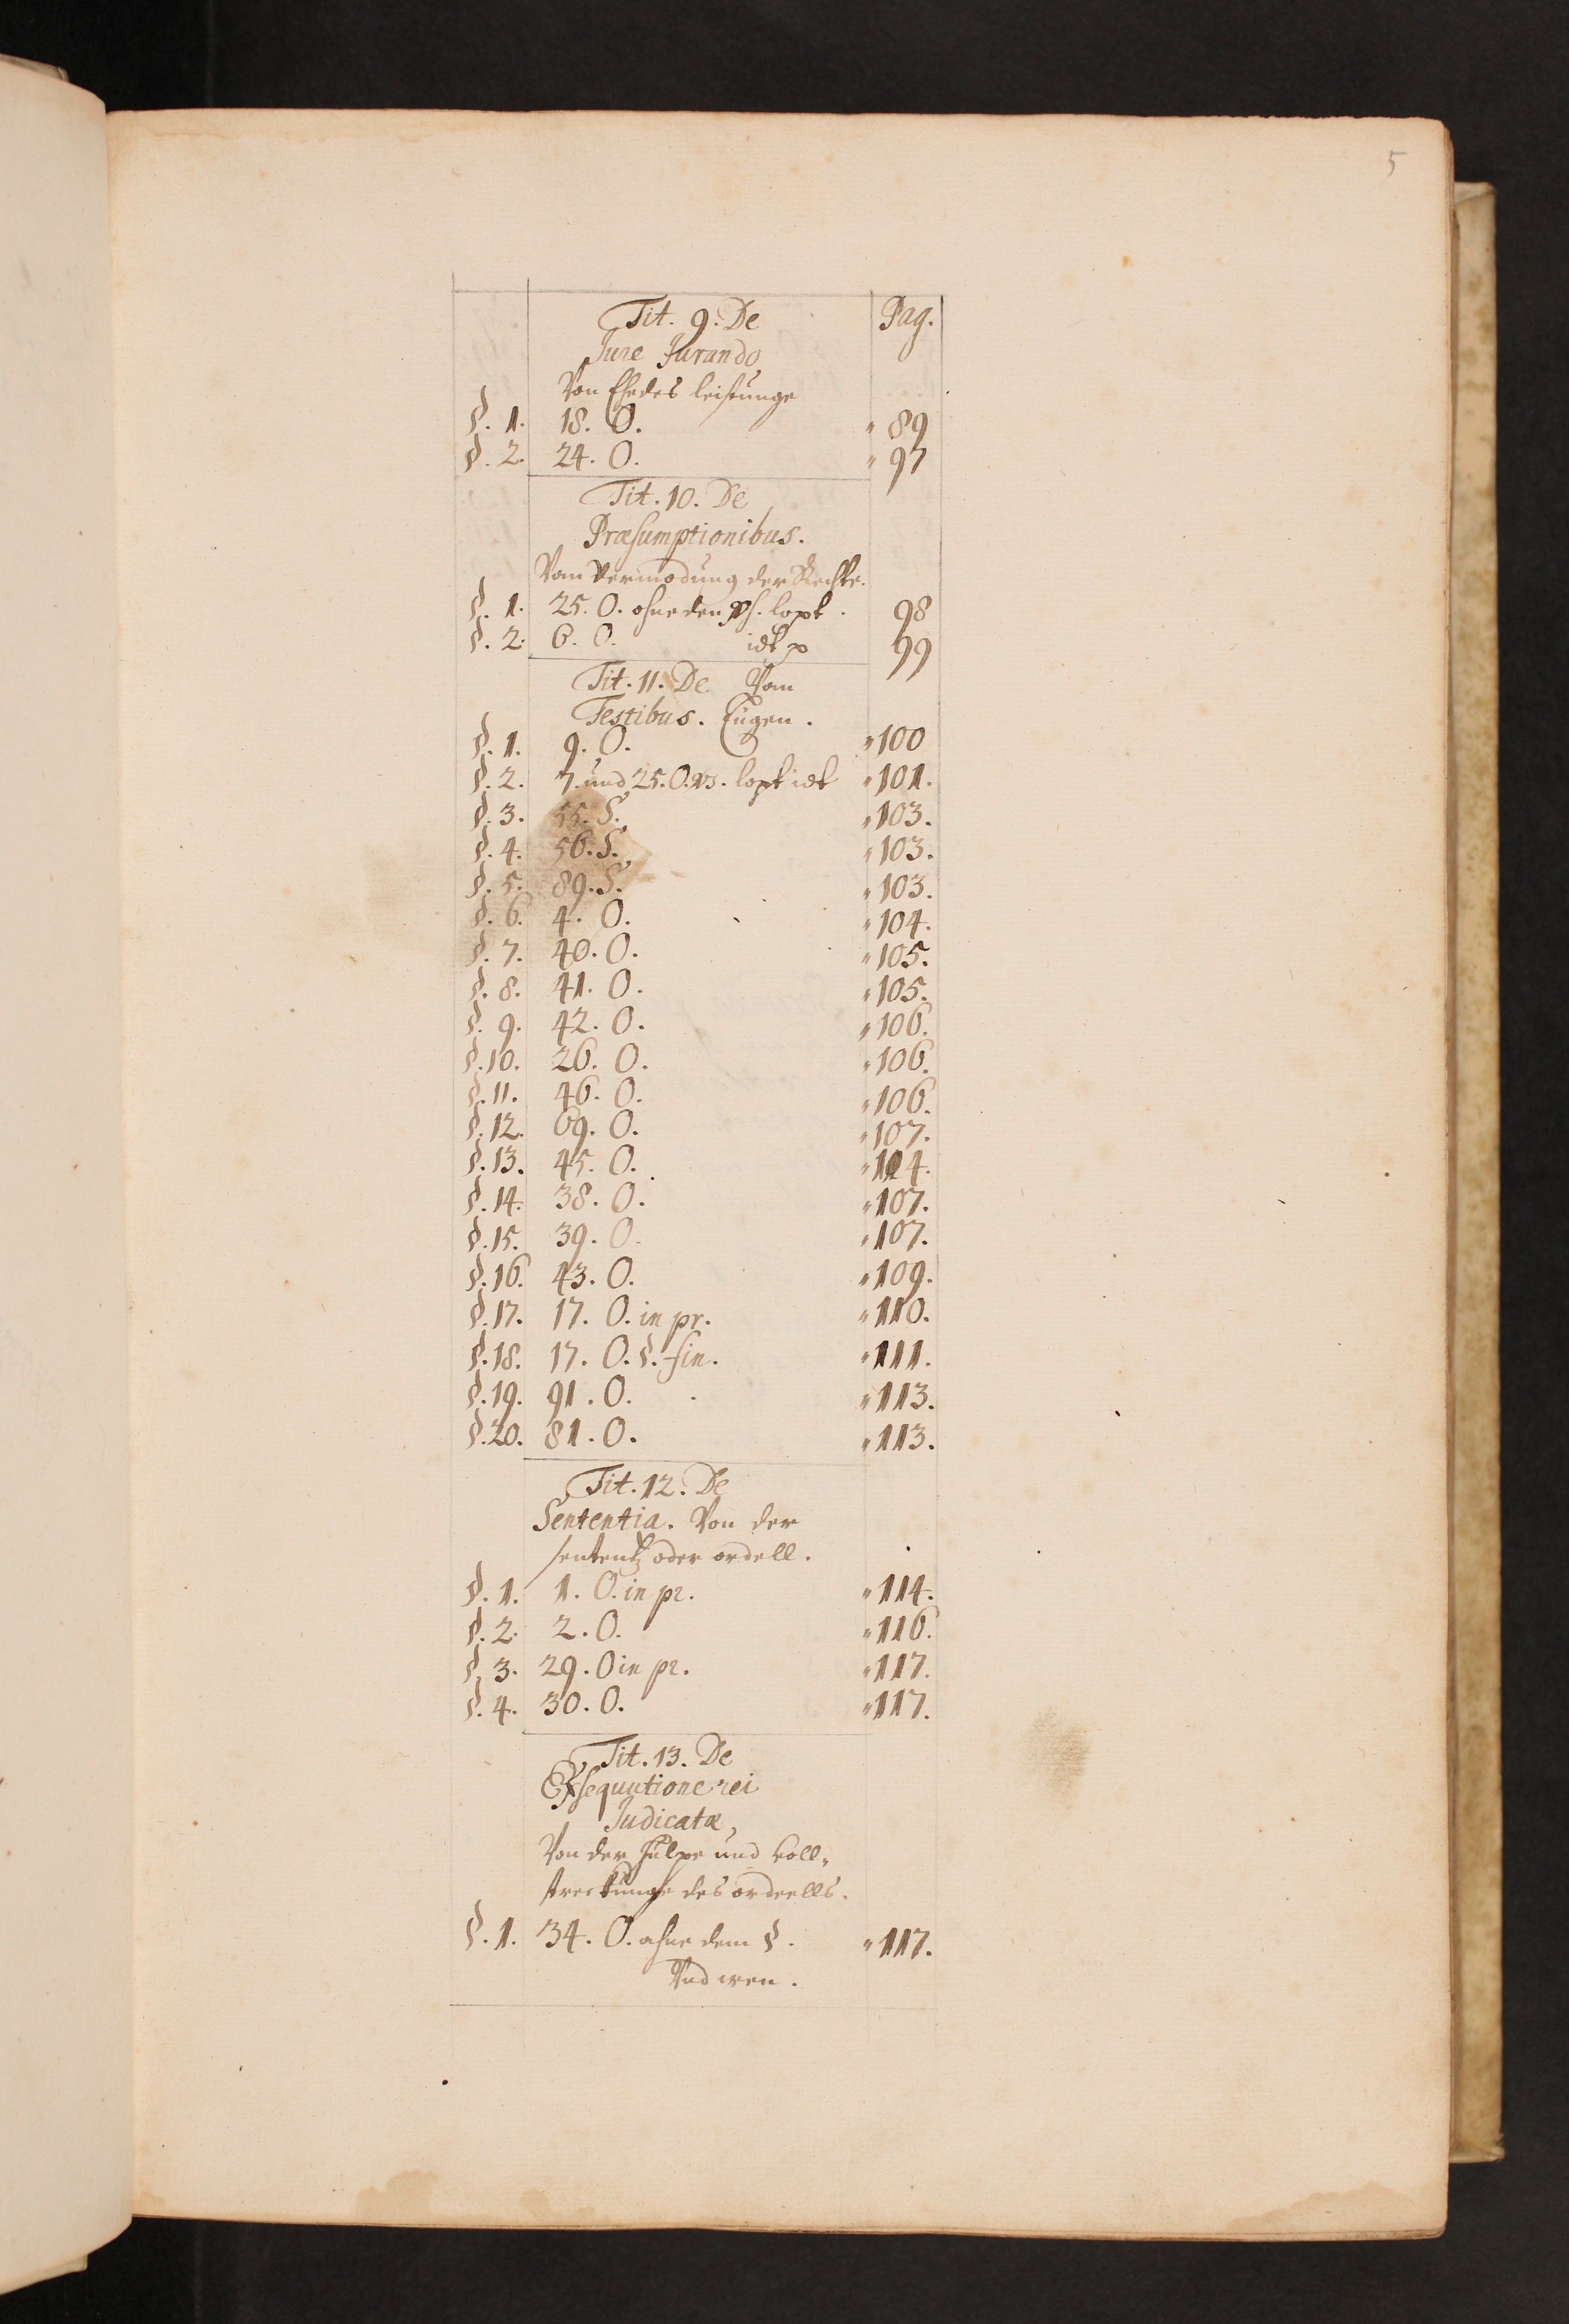 5
Tit. 9. De Pag.
Jure Jurando
Von Ehedes leistunge
§. 1. 18. O. " 89
§. 2. 24. O. " 97
Tit. 10. De
Præsumptionibus.
Vom vermodung der Rechte.
§. 1. 25. O. ohne den §ph. lopt. 98
§. 2. 6. O. idt p 99
Tit. 11. De Von
Testibus. Tugen.
§. 1. 9. O. " 100
§. 2. 7. und 25. O. vs. lopt idt " 101.
§. 3. 55. S. " 103.
§. 4. 56. S. " 103.
§. 5. 89. S. " 103.
§. 6. 4. O. " 104.
§. 7. 40. O. " 105.
§. 8. 41. O. " 105.
§. 9. 42. O. " 106.
§. 10. 26. O. " 106.
§. 11. 46. O. " 106.
§. 12. 69. O. " 107.
§. 13. 45. O.
§. 14. 38. O. " 107.
§. 15. 39. O. " 107.
§. 16. 43. O. " 109.
§. 17. 17. O. in pr. " 110.
§. 18. 17. O. §. fin. " 111.
§. 19. 91. O. " 113.
§. 20. 81. O. " 113.
Tit. 12. De
Sententia. Von der
sententz oder ordell.
§. 1. 1. O. in pr. " 114.
§. 2. 2. O. " 116.
§. 3. 29. O in pr. " 117.
§. 4. 30. O. " 117.
Tit. 13. De
Exsequutione rei
Judicatæ,
Von der Hülpe und voll-
streckunge des ordeells.
§. 1. 34. O. ohne dem §. " 117.
Vnd wen.